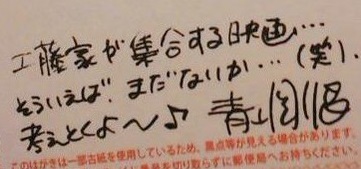 工藤家が集合する映画…
そういえば、まだないか…(笑)、
考えとくよ〜♪ 青山剛昌
このはがきは一部古紙を使用しているため、黒点等が見える場合があります。
を切り取らずに郵便局へお持ちください。